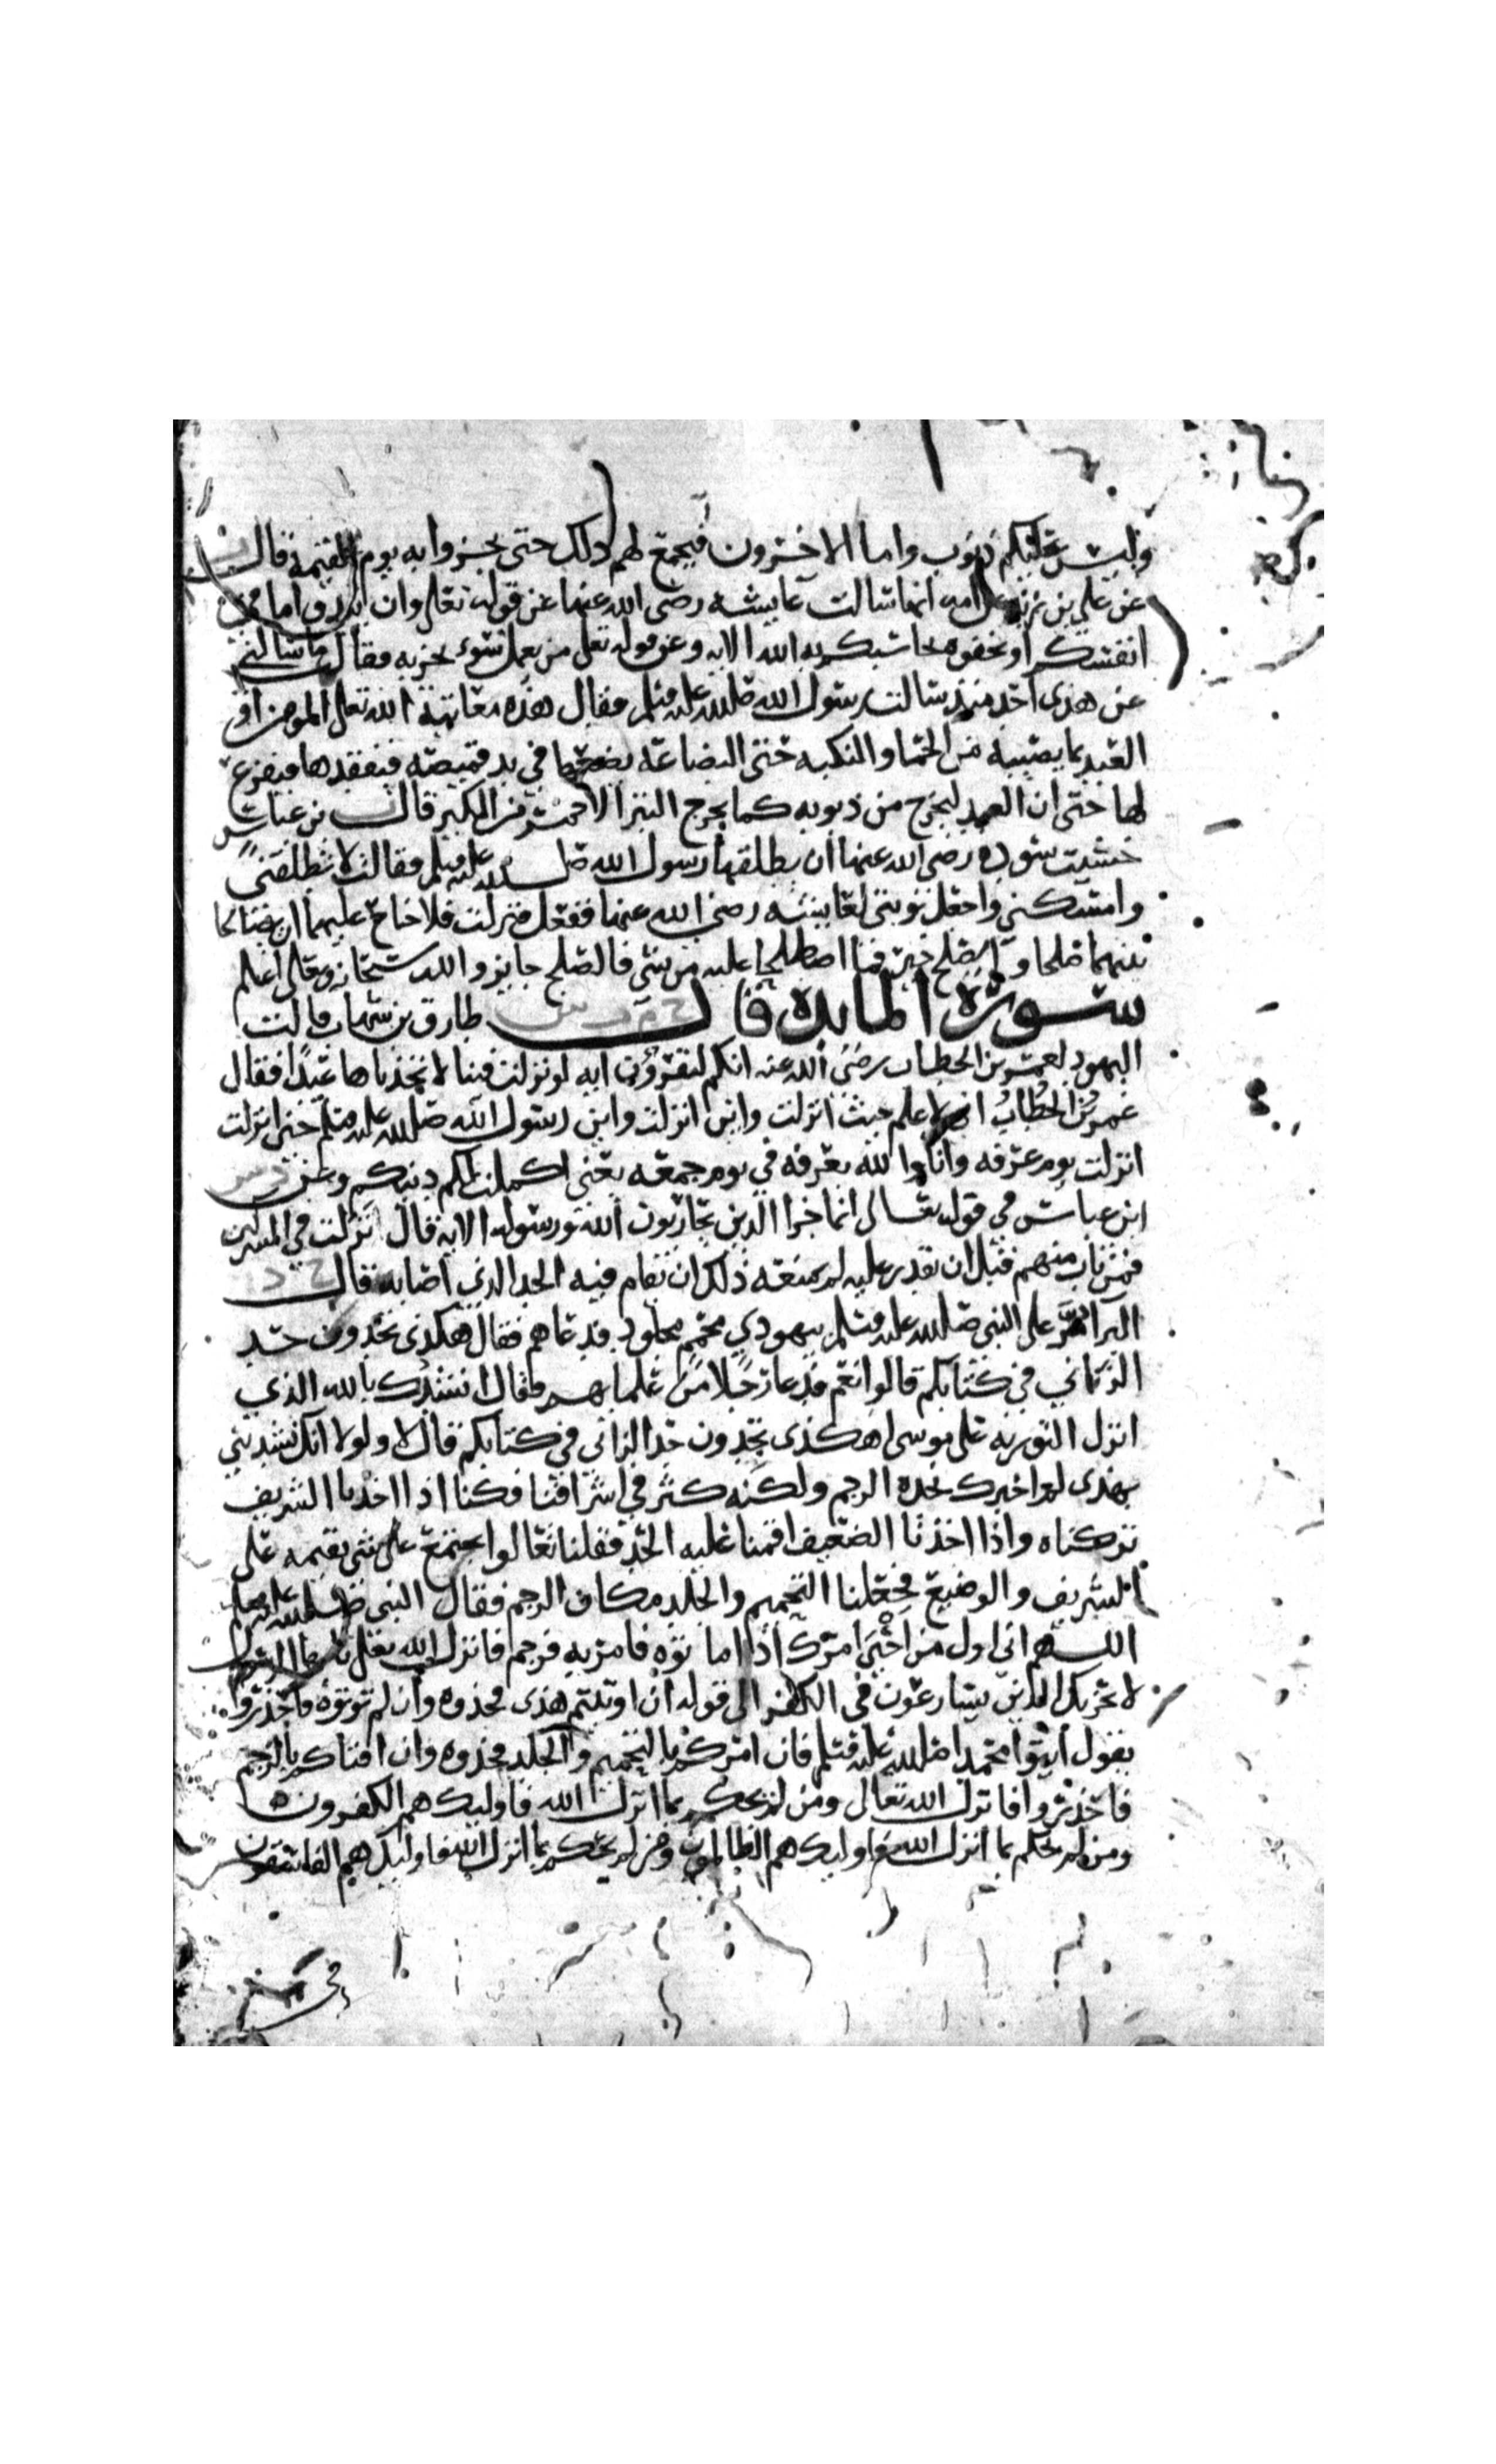 وليس عليكم ذنوب واما الاخرون فيجمع لهم ذلك حتى يجزوا به يوم القيمة قال
عن علي بن زيد عن امه انها سالت عايشه رضي الله عنها عن قوله تعلى وان تبدوا ما في
انفسكم او تخفوه يحاسبكم به الله الايه وعن قوله تعلى من يعمل سوء يجز به فقال ما سالني
عن هذى احد منذ سالت رسول الله صلى الله عليه وسلم فقال هذه معاتبة الله تعلى المومن او
العبد بما يصيبه من الحما والنكبه حتى البضاعة يضعها في يد قميصه فيفقدها فيفزع
لها حتى ان العبد ليخرج من ذنوبه كما يخرج التبر الاحمر من الكير قال بن عباس
خشيت سوده رضي الله عنها ان يطلقها رسول الله صلى الله عليه وسلم فقالت لا تطلقني
وامسكني واجعل نوبتي لعايشه رضي الله عنها ففعل فنزلت فلا جناح عليهما ان يصالحا
بينهما صلحا والصلح خير فما اصطلحا عليه من شي فالصلح جايز والله سبحانه وتعلى اعلم
سورة المايده قال خ م د س طارق بن شهاب قالت
اليهود لعمر بن الخطاب رضي الله عنه انكم لتقرؤن ايه لو نزلت فينا لاتخذناها عيدا فقال
عمر بن الخطاب اني لاعلم حيث انزلت واين انزلت واين رسول الله صلى الله عليه وسلم حين انزلت
انزلت يوم عرفه وانا والله بعرفه في يوم جمعه يعني اكملت لكم دينكم وعن د س
ابن عباس في قوله تعالى انما جزا الذين يحاربون الله ورسوله الايه قال نزلت في المشركين
فمن تاب منهم قبل ان تقدر عليه لم يمنعه ذلك ان يقام فيه الحد الذي اصابه قال خ د
البرا مر على النبي صلى الله عليه وسلم بيهودي محمم مجلود فدعاهم فقال هكذى تجدون حد
الزاني في كتابكم قالوا نعم فدعا رجلا من علمايهم فقال انشدك بالله الذي
انزل التوريه على موسى اهكذى تجدون حد الزاني في كتابكم قال لا ولولا انك نشدتني
بهذى لم اخبرك نجده الرجم ولكنه كثر في اشرافنا فكنا اذا اخذنا الشريف
تركناه واذا اخذنا الضعيف اقمنا عليه الحد فقلنا تعالوا نجتمع على شي نقيمه على
الشريف والوضيع فجعلنا التحميم والجلد مكان الرجم فقال النبي صلى الله عليه وسلم
اللهم اني اول من احيى امرك اذ اماتوه فامر به فرجم فانزل الله تعلى يا ايها الرسول
لا يحزنك الذين يسارعون في الكفر الى قوله ان اوتيتم هذى فخذوه وان لم توتوه فاحذروا
يقول ايتوا محمدا صلى الله عليه وسلم فان امركم بالتحميم والجلد فخذوه وان افتاكم بالرجم
فاحذروا فانزل الله تعالى ومن لم يحكم بما انزل الله فاوليك هم الكفرون
ومن لم يحكم بما انزل الله فاوليك هم الظالمون ومن لم يحكم بما انزل الله فاوليك هم الفاسقون